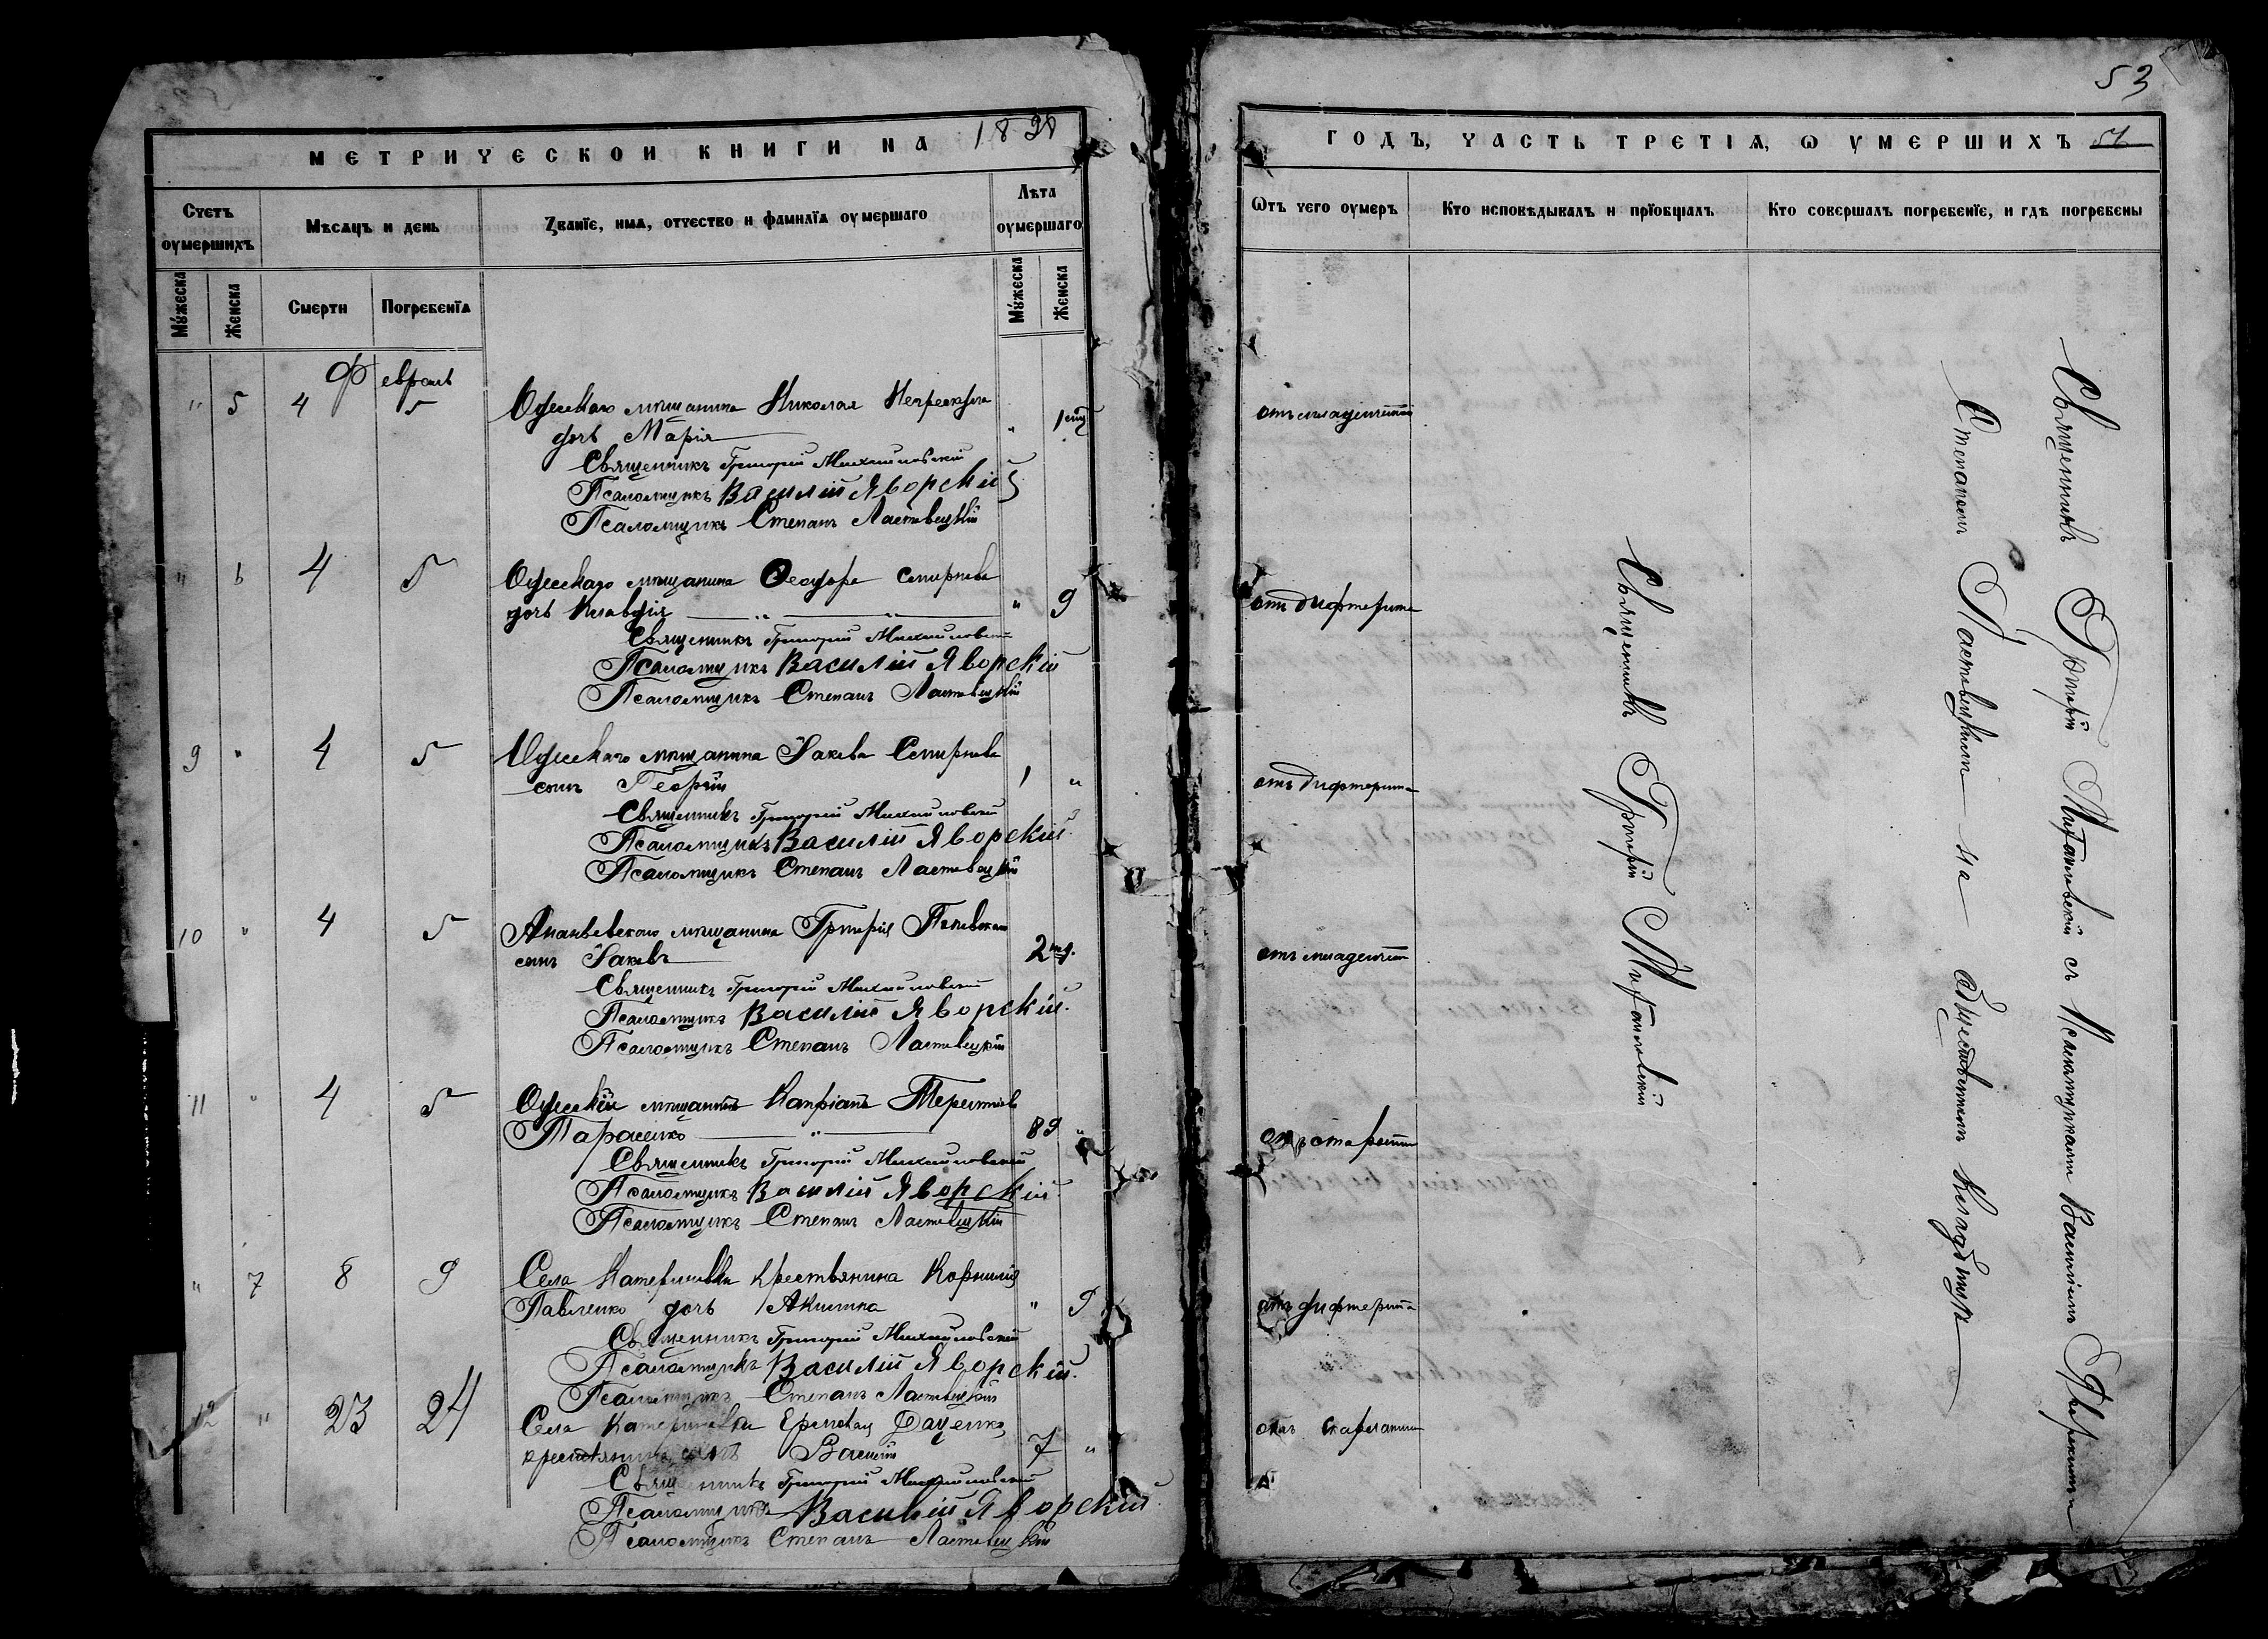 МЕТРИЧЕСКОЙ КНИГИ НА 1898
Счетъ оумершихъ
Мѣсяцъ и день
Званїе, имя, отчество и фамилїя оумершаго
Лѣта оумершаго
Мꙋжеска
Женска
Смерти
Погребенїя
Мꙋжеска
Женска
Февраль
" 5 4 5 Одесскаго мѣщанина Николая
дочь Марія "
Священникъ Григорій Михайловскій
Псаломщикъ Василій Яворскій
Псаломщикъ Степанъ Ластовецкій
" 6 4 5 Одесскаго мѣщанина Ѳеодора Смирнова
дочь Клавдія " 9
Священникъ Григорій Михайловскій
Псаломщикъ Василій Яворскій
Псаломщикъ Степанъ Ластовецкій
9 " 4 5 Одесскаго мѣщанина Іакова Смирнова
сынъ Георгій 1 "
Священникъ Григорій Михайловскій
Псаломщикъ Василій Яворскій.
Псаломщикъ Степанъ Ластовецкій
10 " 4 5 Ананьевскаго мѣщанина Григорія
сынъ Іаковъ
Священникъ Григорій Михайловскій
Псаломщикъ Василій Яворскій.
Псаломщикъ Степанъ Ластовецкій
11 " 4 5 Одесскій мѣщанинъ Терентіевъ
Тарасенко " 89 "
Священникъ Григорій Михайловскій
Псаломщикъ Василій Яворскій.
Псаломщикъ Степанъ Ластовецкій
" 7 8 9 Села Катериновки крестьянина Корнилія
Павленко дочь Акилина " 9
Священникъ Григорій Михайловскій
Псаломщикъ Василій Яворскій.
Псаломщикъ Степанъ Ластовецкій
12 " 23 24 Села Катериновки Доценко
крестьянина сынъ Василій 7 "
Священникъ Григорій Михайловскій
Псаломщикъ Василій Яворскій.
Псаломщикъ Степанъ Ластовецкій
53
ГОДЪ, ЧАСТЬ ТРЕТІѦ, Ѡ УМЕРШИХЪ
Ѿтъ чего оумеръ
Кто исповѣдывалъ и прїобщалъ
Кто совершалъ погребенїе, и гдѣ погребены
отъ младенческой
отъ дифтерита
отъ дифтерита
отъ младенческой
отъ старости
отъ дифтерита
отъ скарлатины
Священникъ Григорій Михайловскій
Священникъ Григорій Михайловскій съ Псаломщикомъ Василіемъ Яворскимъ
Степаномъ Ластовецкимъ на общественномъ кладбищѣ